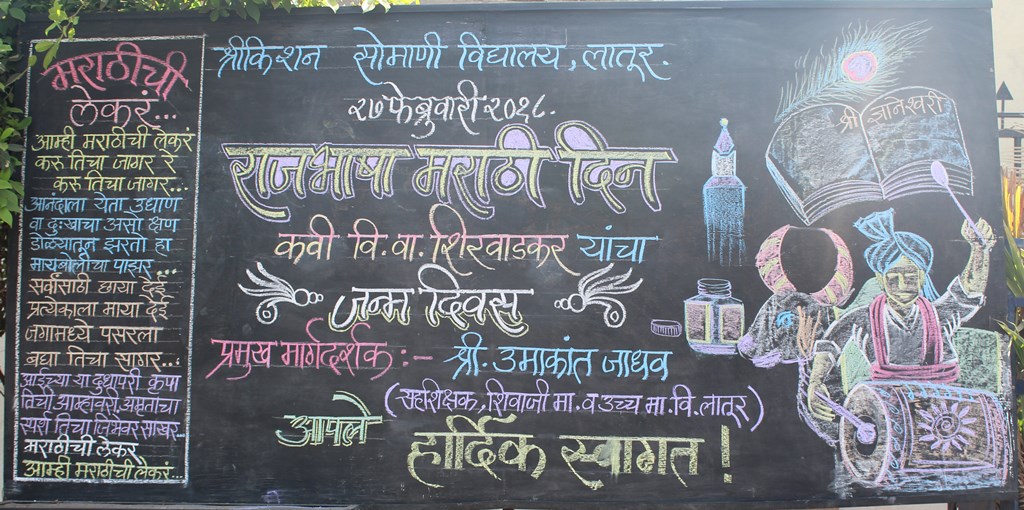 मराठीची
लेकरं...
आम्ही मराठीची लेकरं
करू तिचा जागर रे
करू तिचा जागर...
आनंदाला येता उधाण
वा दुःखाचा असो क्षण
डोळ्यातून झरतो हा
मायबोलीचा पाझर...
सर्वांसाठी छाया देई
प्रत्येकाला माया देई
जगामध्ये पसरला
बघा तिचा सागर...
आईच्या या दुधापरी कृपा
तिची आम्हांवरी अमृताचा
स्पर्श तिचा जिभेवर साखर...
मराठीची लेकरं
आम्ही मराठीची लेकरं...
श्रीकिशन सोमाणी विद्यालय, लातूर.
२७ फेब्रुवारी २०१८.
राजभाषा मराठी दिन
कवी वि. वा. शिरवाडकर यांचा
जन्म दिवस
प्रमुख मार्गदर्शक :- श्री. उमाकांत जाधव
(सहशिक्षक, शिवाजी मा. व उच्च मा. वि. लातूर)
आपले
हार्दिक स्वागत !
श्री ज्ञानेश्वरी